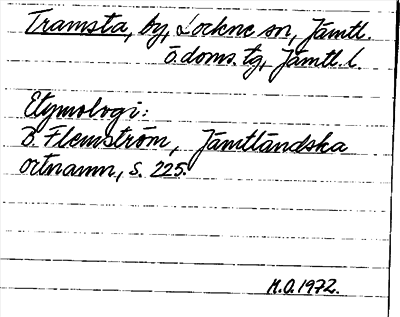 Tramsta, by, Lockne sn, Jämtl.
ö. doms. tg, Jämtl. l.
Etymologi:
B. Flemström, Jämtländska
ortnamn, s. 225.
M.O. 1972.